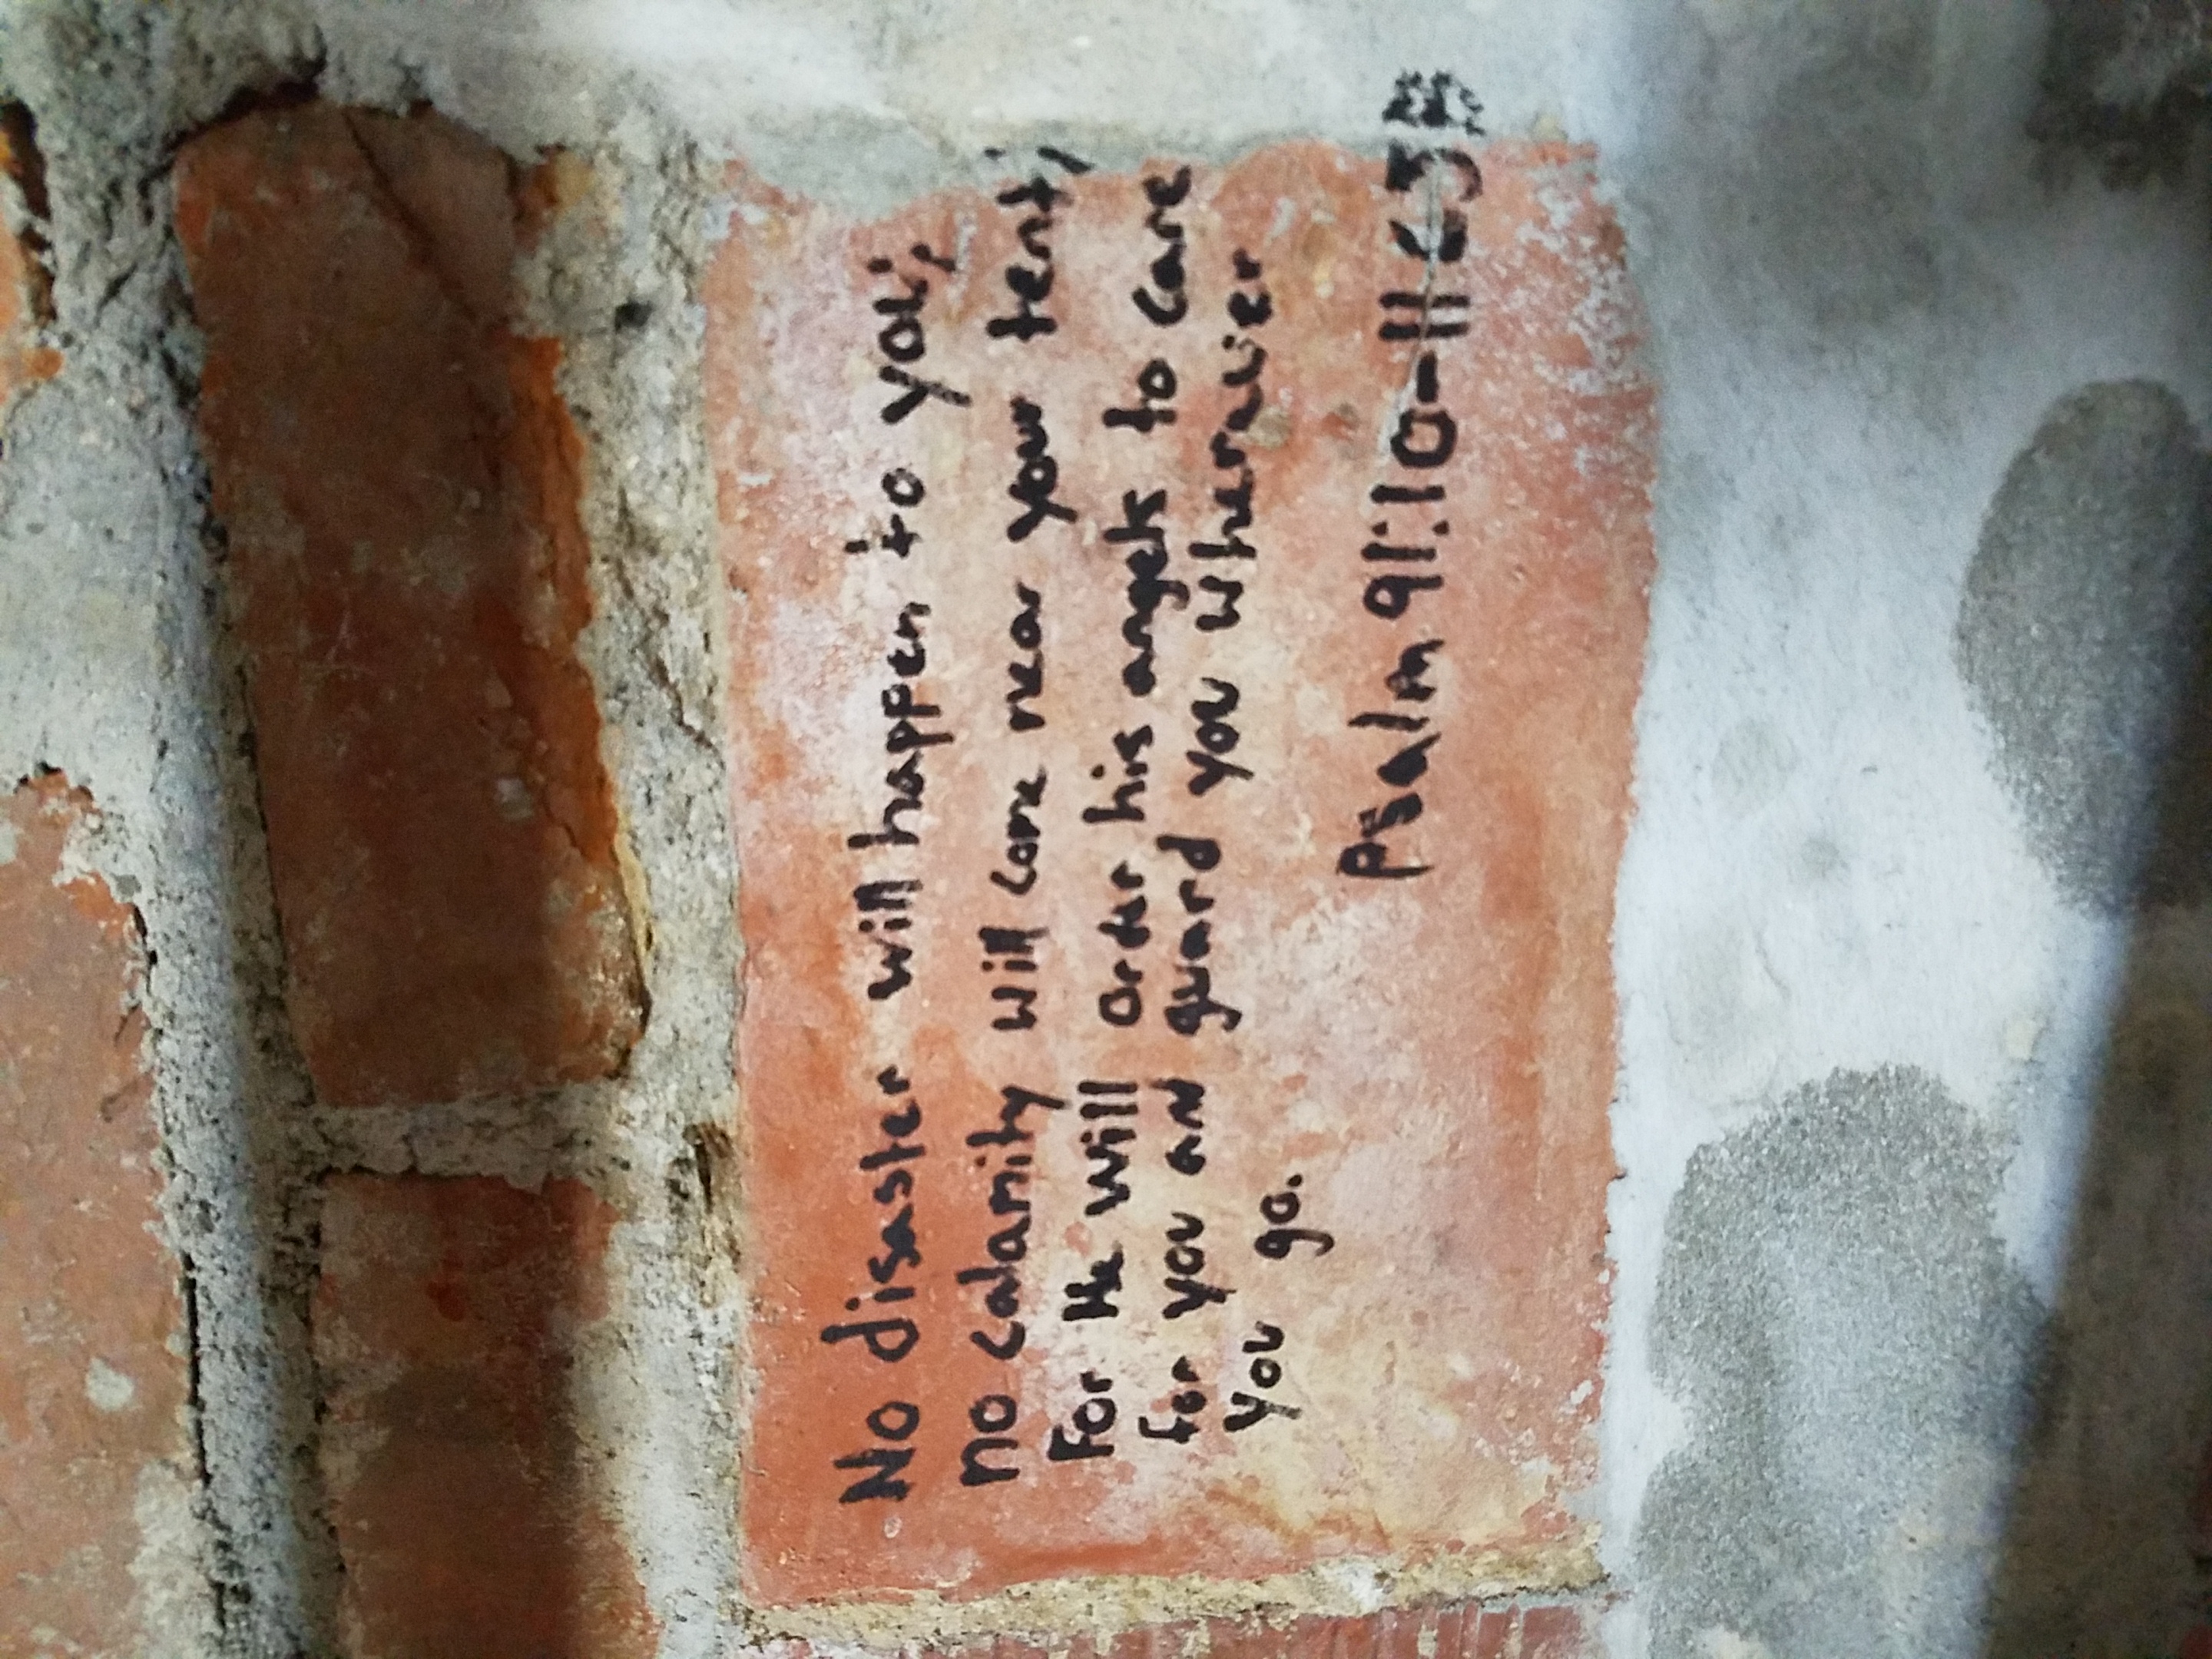 No disaster will happen to you;
no calamity will come near your tent;
For He will order his angels to care
for you and guard you wheraver
you go.
Psalm 91:10-11 CJB